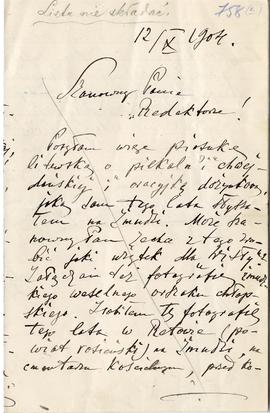 Listu nie składać.
758
12/X 1904.
Szanowny Panie
Redaktorze!
Posyłam więc piosnkę
litewską o
i oracyję
jaką sam tego lata słysza-
łem na Żmudzi. Może Sza-
nowny Pan zechce z tego zro-
bić jaki użytek dla
Załączam też fotografię żmudz-
kiego weselnego orszaku chłop-
skiego. Zrobiłem tę fotografię
tego lata w Retowie (po-
wiat rosieński) na Żmudzi, na
cmentarzu kościelnym, przed ko-